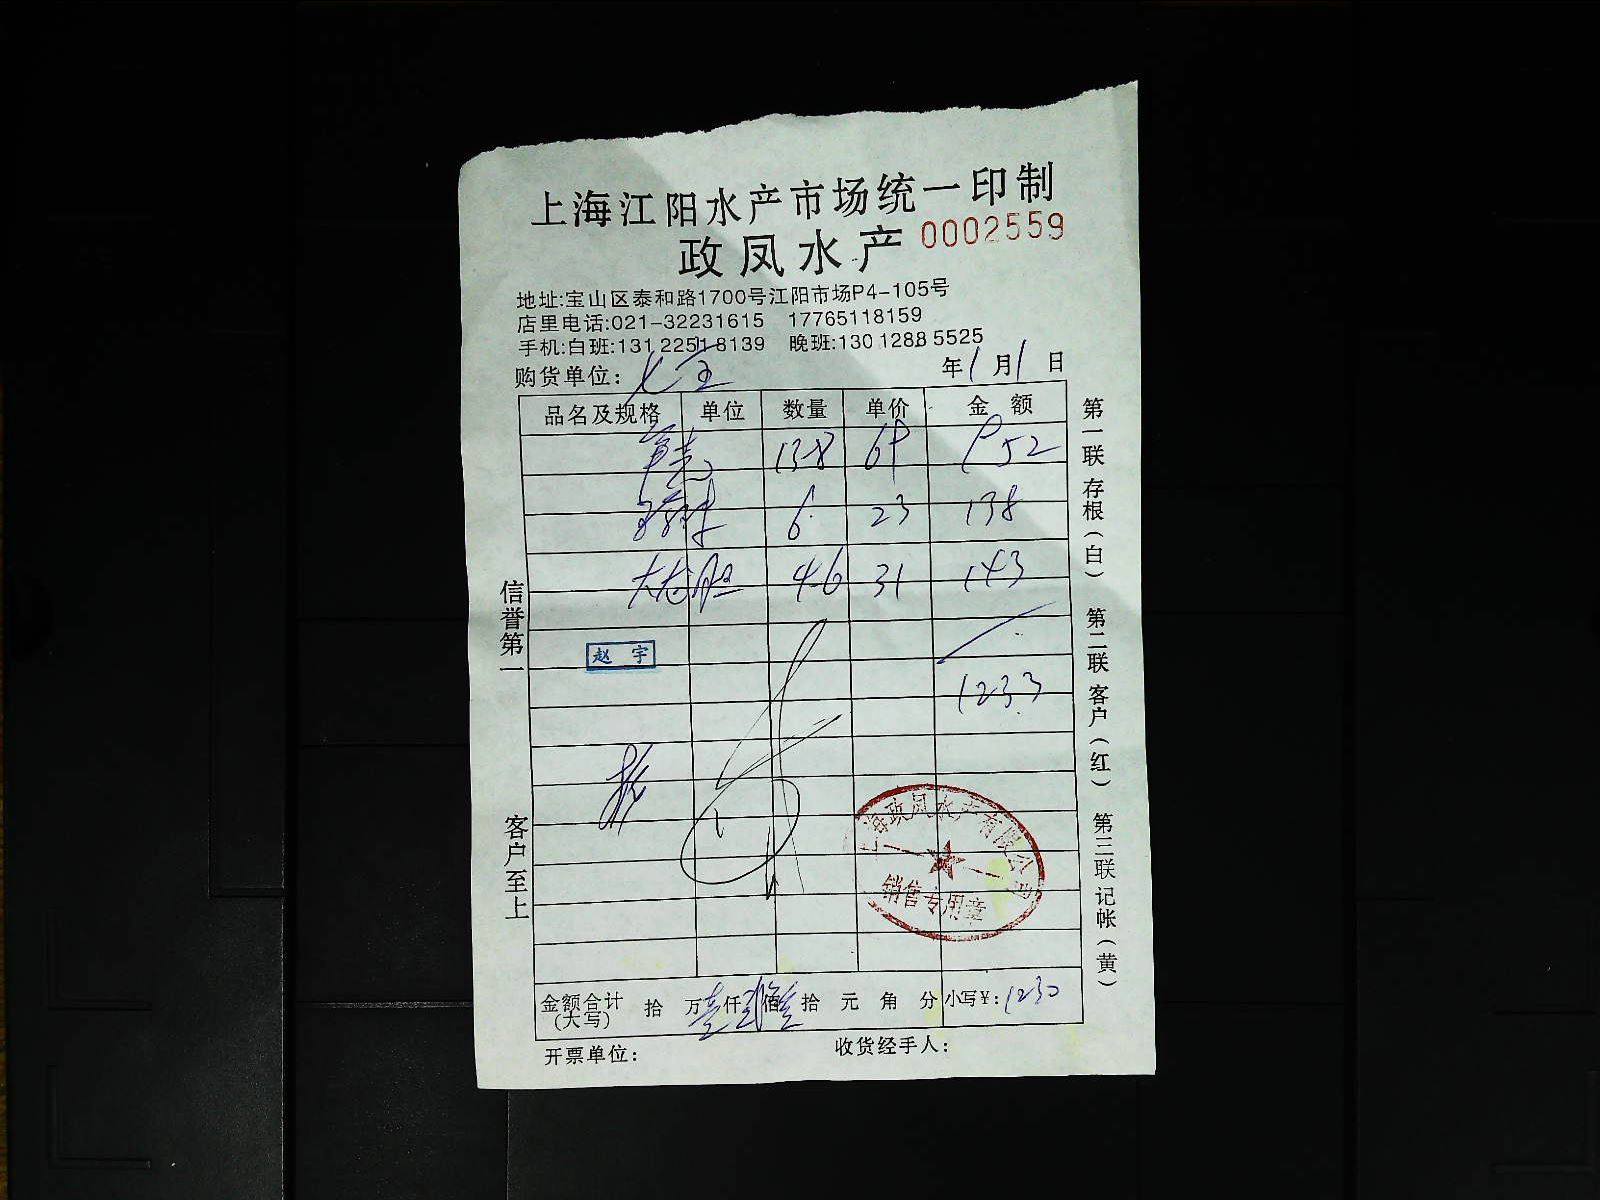 上海江阳水产市场统一印制
政凤水产 0002559
地址:宝山区泰和路1700号江阳市场P4-105号
店里电话:021-32231615 17765118159
手机:白班:13122518139 晚班:13012885525
购货单位: 年1月1日
品名及规格 单位 数量 单价 金额
138 69 952
6 23 138
大龙胆 4.6 31 143
赵宇
1233
上海政凤水产有限公司
销售专用章
金额合计(大写) 拾 万壹仟贰佰叁拾 元 角 分 小写¥:1230
开票单位: 收货经手人:
信誉第一
客户至上
第一联存根(白) 第二联客户(红) 第三联记帐(黄)